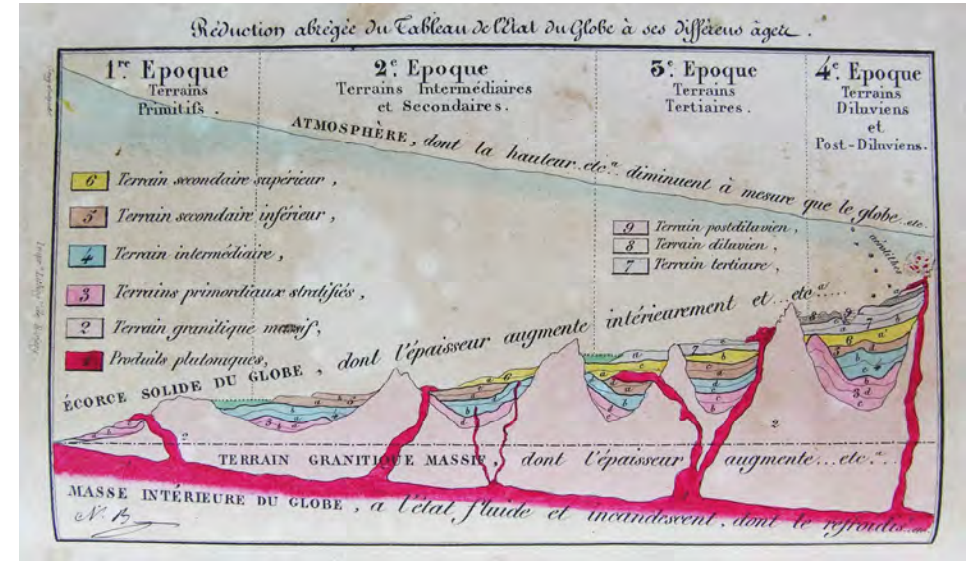 Réduction abrégée du Tableau de l'État du Globe à ses différens âges.
1re Epoque
Terrains
Primitifs.
2e Epoque
Terrains Intermédiaires
et Secondaires.
3e Epoque
Terrains
Tertiaires.
4e Epoque
Terrains
Diluviens
et
Post-Diluviens.
ATMOSPHÈRE, dont la hauteur...etc.a diminuent à mesure que le globe...etc.
6 Terrain secondaire supérieur,
5 Terrain secondaire inférieur,
4 Terrain intermédiaire,
3 Terrains primordiaux stratifiés,
2 Terrain granitique massif,
Produits plutoniques,
9 Terrain postdiluvien,
8 Terrain diluvien,
7 Terrain tertiaire,
aérolithes
ÉCORCE SOLIDE DU GLOBE, dont l'épaisseur augmente intérieurement et...etc.a....
TERRAIN GRANITIQUE MASSIF, dont l'épaisseur augmente...etc.a..
MASSE INTÉRIEURE DU GLOBE, a l'état fluide et incandescent, dont le refroidis...
N. B.